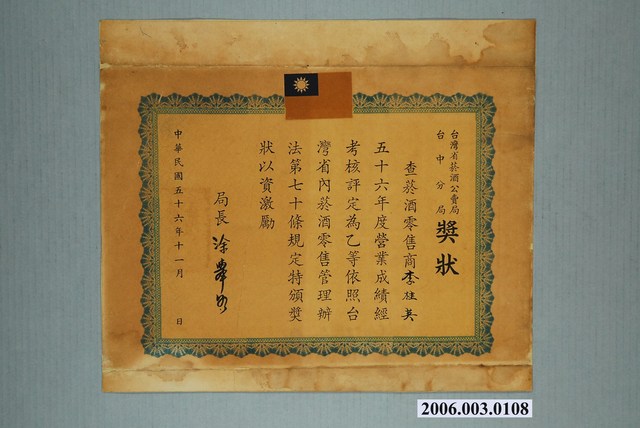 台灣省菸酒公賣局
台中分局
獎狀
查菸酒零售商李柱英
五十六年度營業成績經
考核評定為乙等依照台
灣省內菸酒零售管理辦
法第七十條規定特頒獎
狀以資激勵
局長
中華民國五十六年十一月 日
2006.003.0108